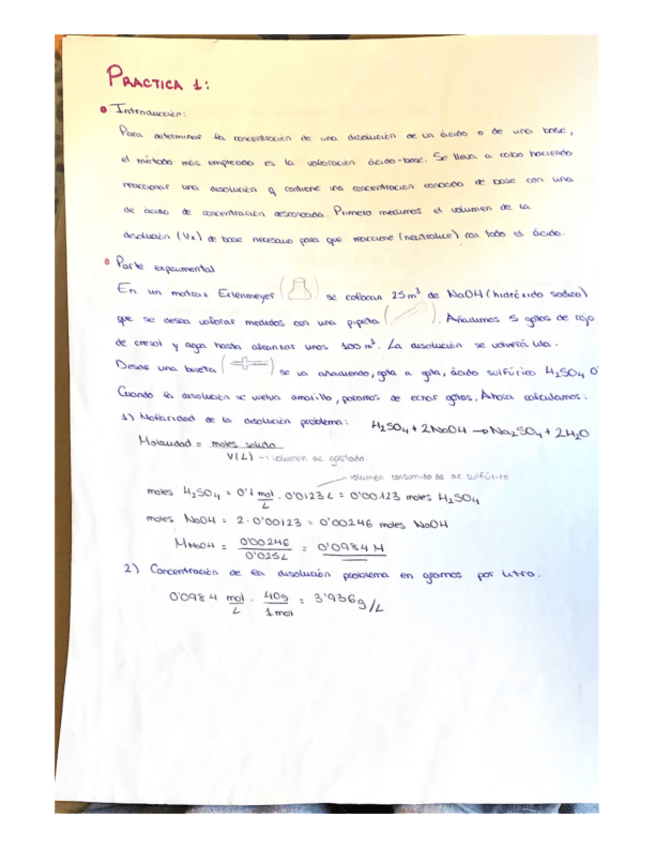 PRACTICA 1:
Introducción:
Para determinar la concentración de una disolución de un ácido o de una base,
el método más empleado es la valoración ácido-base. Se lleva a cabo haciendo
reaccionar una disolución q contiene una concentración conocida de base con una
de ácido de concentración desconocida. Primero medimos el volumen de la
disolución (Vx) de base necesario para que reaccione (neutralice) con todo el ácido.
Parte experimental
En un matraz Erlenmeyer ( ) se colocan 25 m³ de NaOH (hidróxido sodico)
que se desea valorar medidos con una pipeta ( ). Añadimos 5 gotas de rojo
de cresol y agua hasta alcanzar unos 100 m³. La disolución se volverá lila.
Desde una bureta ( ) se va añadiendo, gota a gota, ácido sulfúrico H₂SO₄ 0'
Cuando la disolución se vuelva amarillo, paramos de echar gotas. Ahora calculamos:
1) Molaridad de la disolución problema: H₂SO₄ + 2NaOH → Na₂SO₄ + 2H₂O
Molaridad = moles soluto
V(L) → volumen ac gastado.
volumen consumido de ac sulfúrico
moles H₂SO₄ = 0'1 mol/L · 0'0123 L = 0'00123 moles H₂SO₄
moles NaOH = 2 · 0'00123 = 0'00246 moles NaOH
M NaOH = 0'00246 / 0'025L = 0'0984 M
2) Concentración de la disolución problema en gramos por litro.
0'0984 mol/L · 40g/1 mol = 3'936 g/L